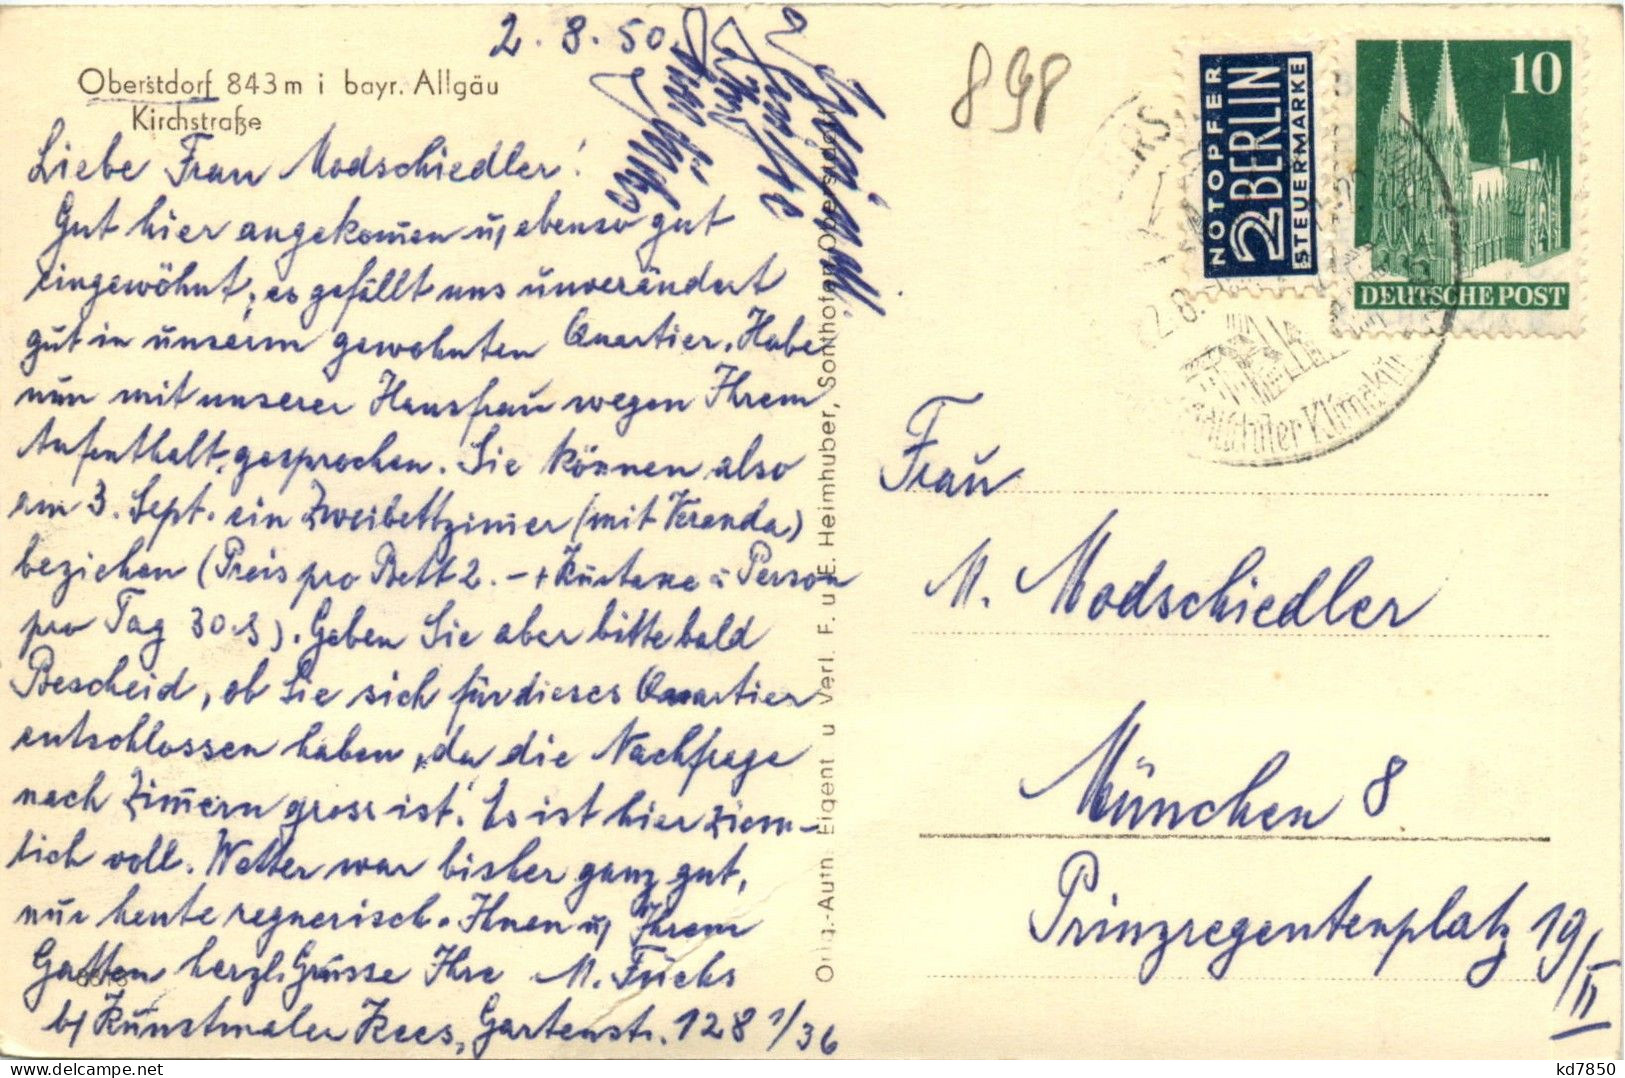 2. 8. 50
Oberstdorf 843 m i bayr. Allgäu
Kirchstraße
Liebe Frau Modschiedler!
Gut hier angekomen u, ebenso gut
eingewöhnt, es gefällt uns unverändert
gut in unserm gewohnten Quartier. Habe
nun mit unserer Hausfrau wegen Ihrem
Aufenthalt, gesprochen. Sie können also
am 3. Sept. ein Zweibettzimer (mit Veranda)
beziehen (Preis pro Bett 2.-+ Kurtaxe à Person
pro Tag 30 ₰). Geben Sie aber bitte bald
Bescheid, ob Sie sich für dieses Quartier
entschlossen haben, da die Nachfrage
nach Zimern gross ist. Es ist hier ziem-
lich voll. Wetter war bisher ganz gut,
nur heute regnerisch. Ihnen u, Ihrem
Gatten herzl. Grüsse Ihre M. Fuchs
b/ Kunstmaler Kees, Gartenstr. 128 1/36
Orig.-Aufn. Eigent u Verl. F. u. E. Heimhuber, Sonthofen/Oberstdorf
898
NOTOPFER
2 BERLIN
STEUERMARKE
10
DEUTSCHE POST
2.8.
Frau
M. Modschiedler
München 8
Prinzregentenplatz 19/II
kd7850